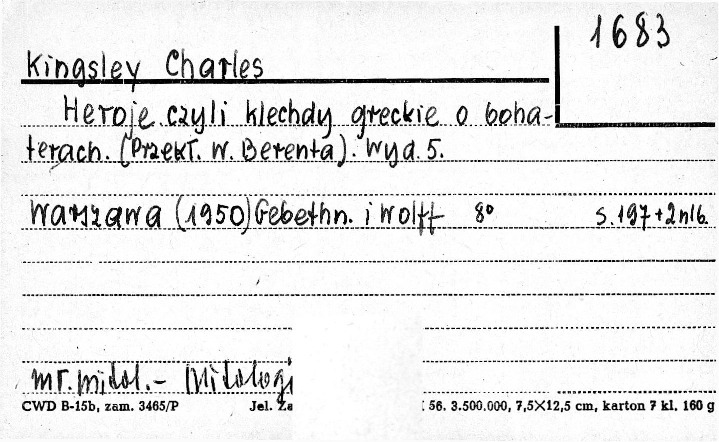 1683
Kingsley Charles
Heroje czyli klechdy greckie o boha-
terach. (Przekł. W. Berenta). Wyd. 5.
Warszawa (1950) Gebethn. i Wolff 8° s. 197+2nlb.
mitol. - Mitologi
CWD B-15b, zam. 3465/P Jel. Za 56. 3.500.000, 7,5×12,5 cm, karton 7 kl. 160 g